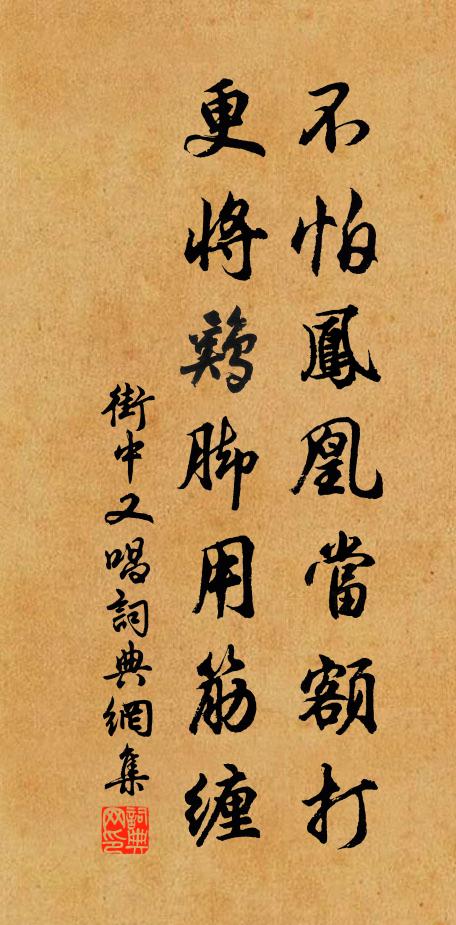 不怕鳳凰當額打
更將鷄脚用筋纏
街中又唱詞典網集
詞典网印